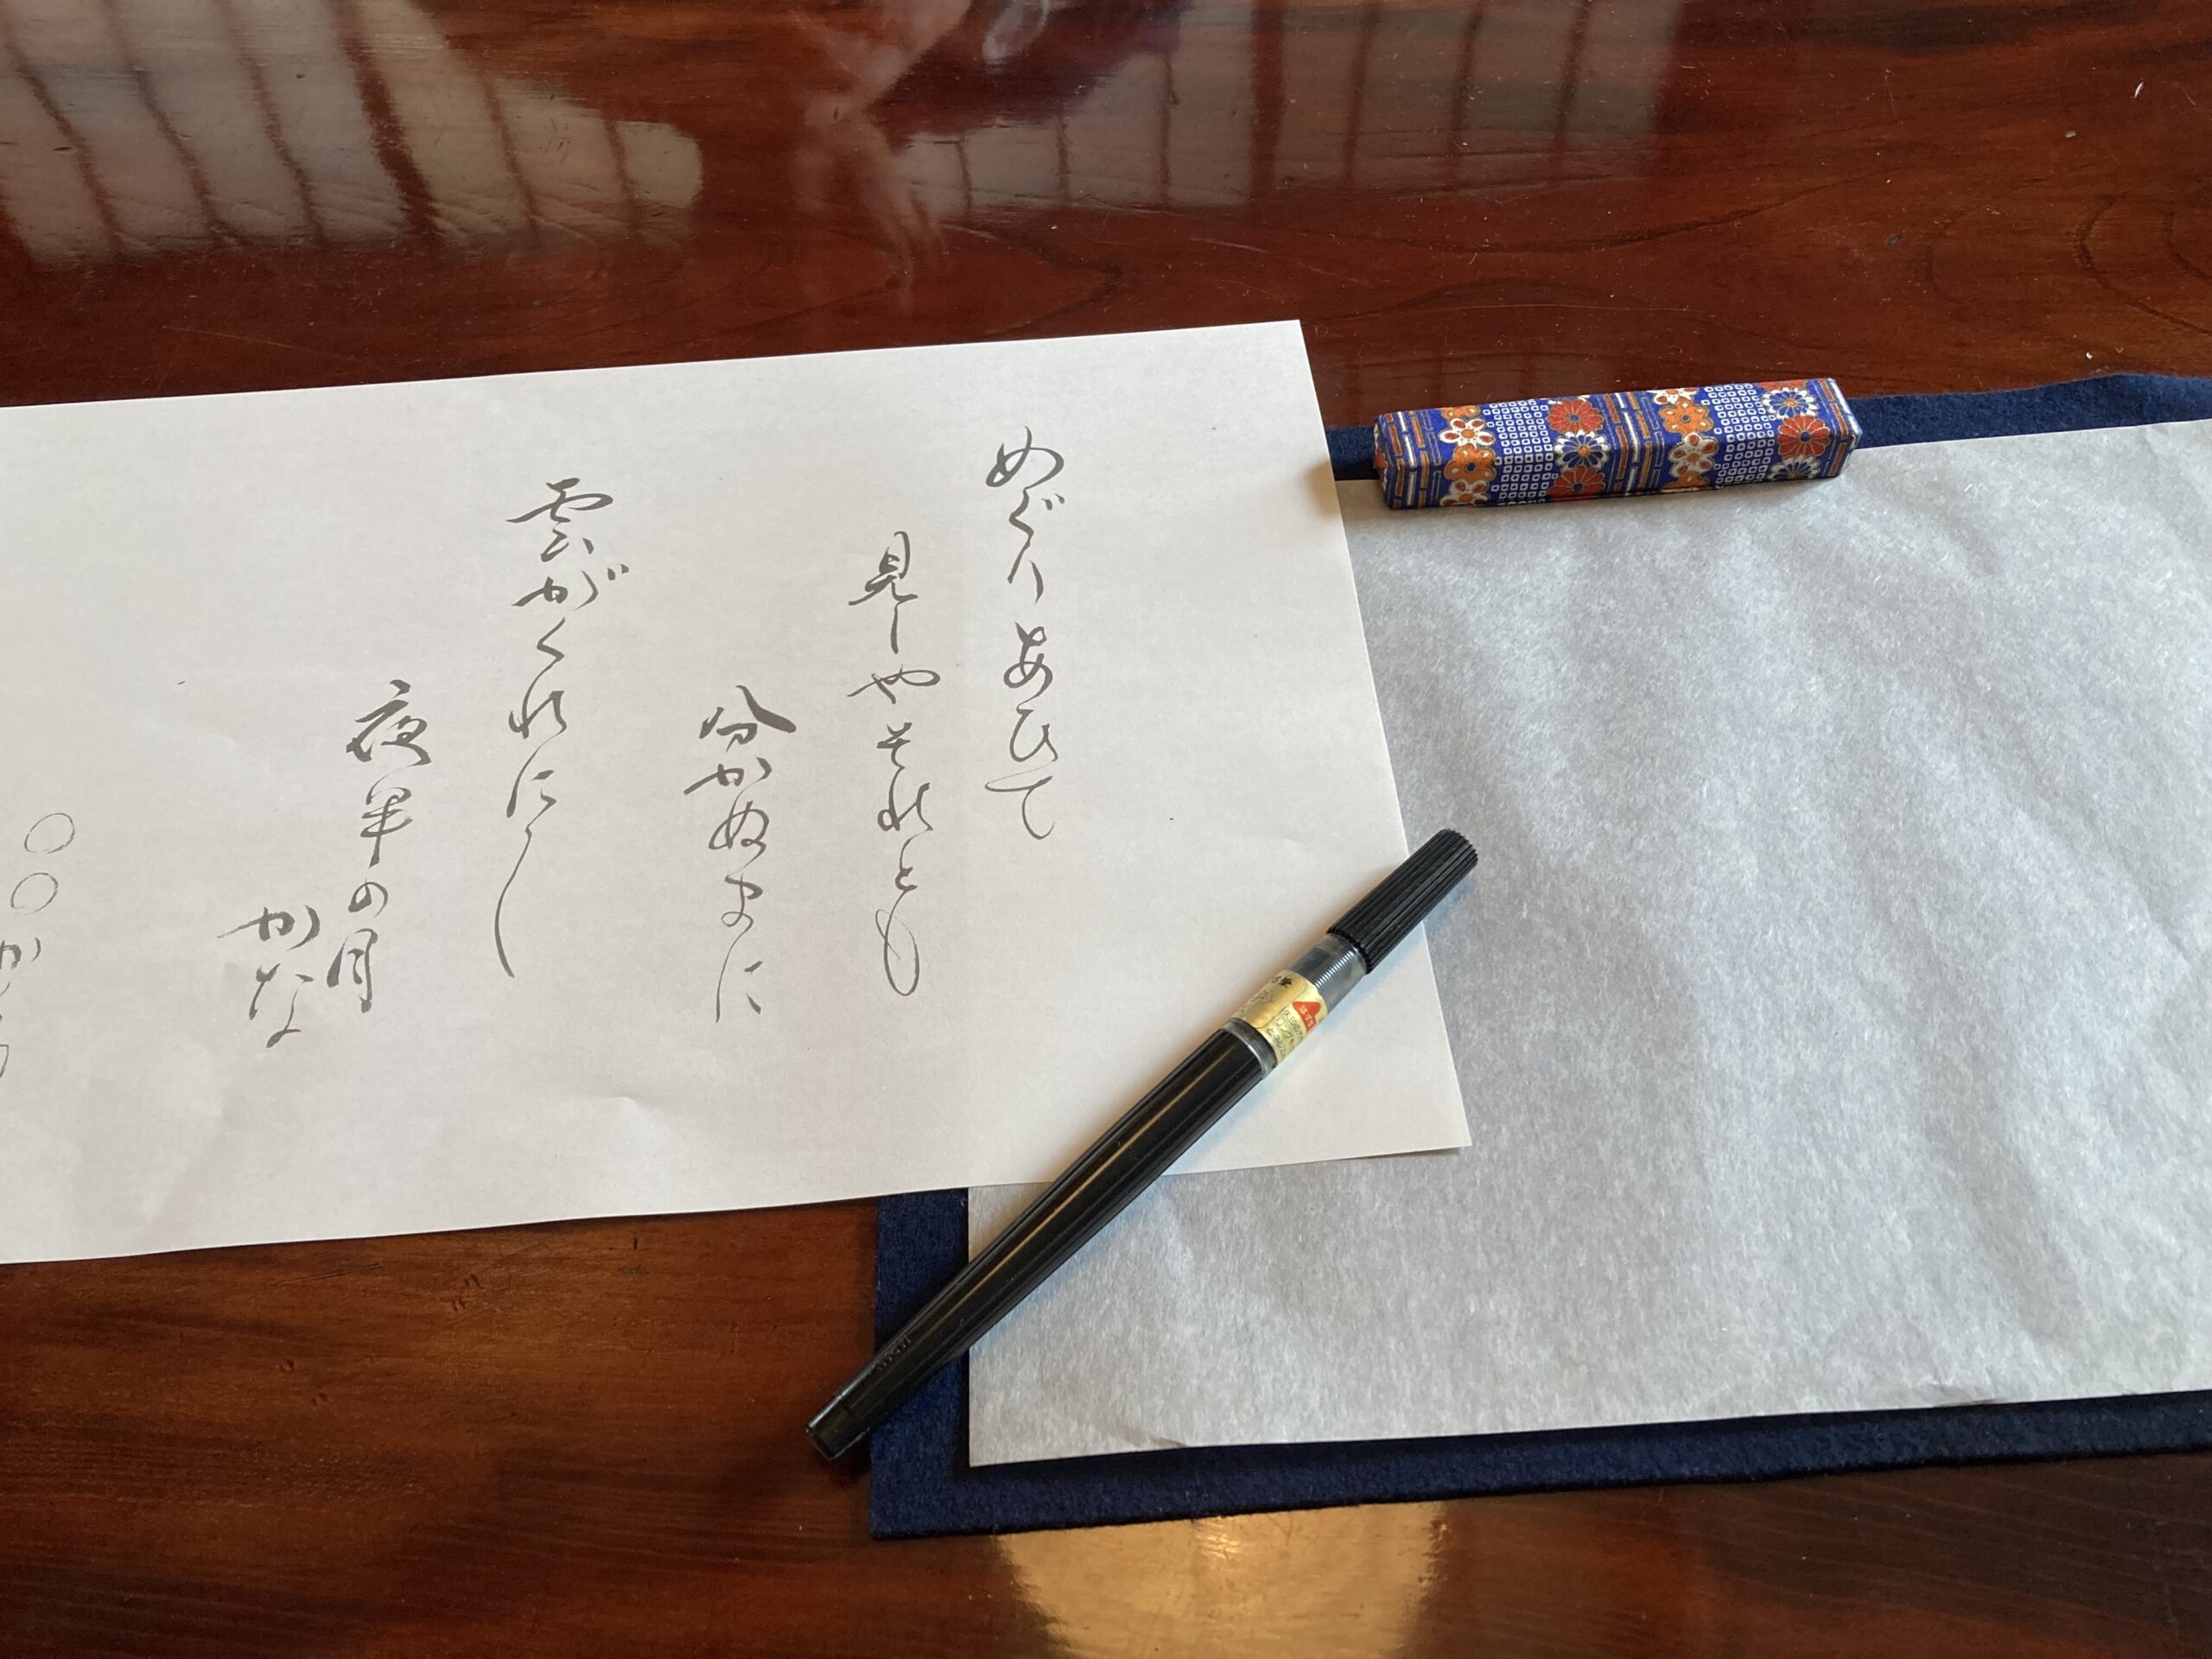 めぐりあひて
見しやそれとも
分かぬまに
雲がくれにし
夜半の月
かな
〇〇か